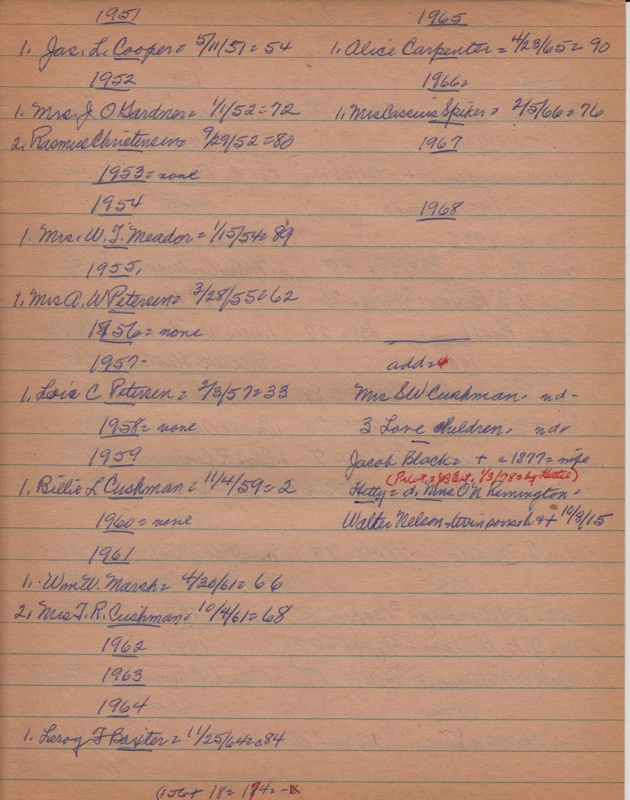 1951
1. Jas. L. Cooper = 5/11/51 = 54
1952
1. Mrs. J O Gardner = 1/1/52 = 72
2. Rasmus Christensen = 9/29/52 = 80
1953 = none
1954
1. Mrs. W. T. Meador = 1/15/54 = 89
1955.
1. Mrs A. W Petersen = 3/28/55 = 62
1956 = none
1957-
1. Lois C Petersen = 2/3/57 = 33
1958 = none
1959
1. Billie L Cushman = 11/4/59 = 2
1960 = none
1961
1. Wm W. Marsh = 4/20/61 = 66
2. Mrs T. R. Cushman = 10/4/61 = 68
1962
1963
1964
1. Leroy F Baxter = 11/25/64 = 84
(156 + 18 = 174 =
1965
1. Alice Carpenter = 4/23/65 = 90
1966 =
1. Mrs Cassius Spiker = 2/5/66 = 76
1967
1968
add =
Mrs S W Cushman - nd -
3 Love children - nd
Jacob Black = + 1877 = wife
1/3/78 = by Hettie)
Hetty = d. O'N Remington -
Walter Nelson + 10/8/15